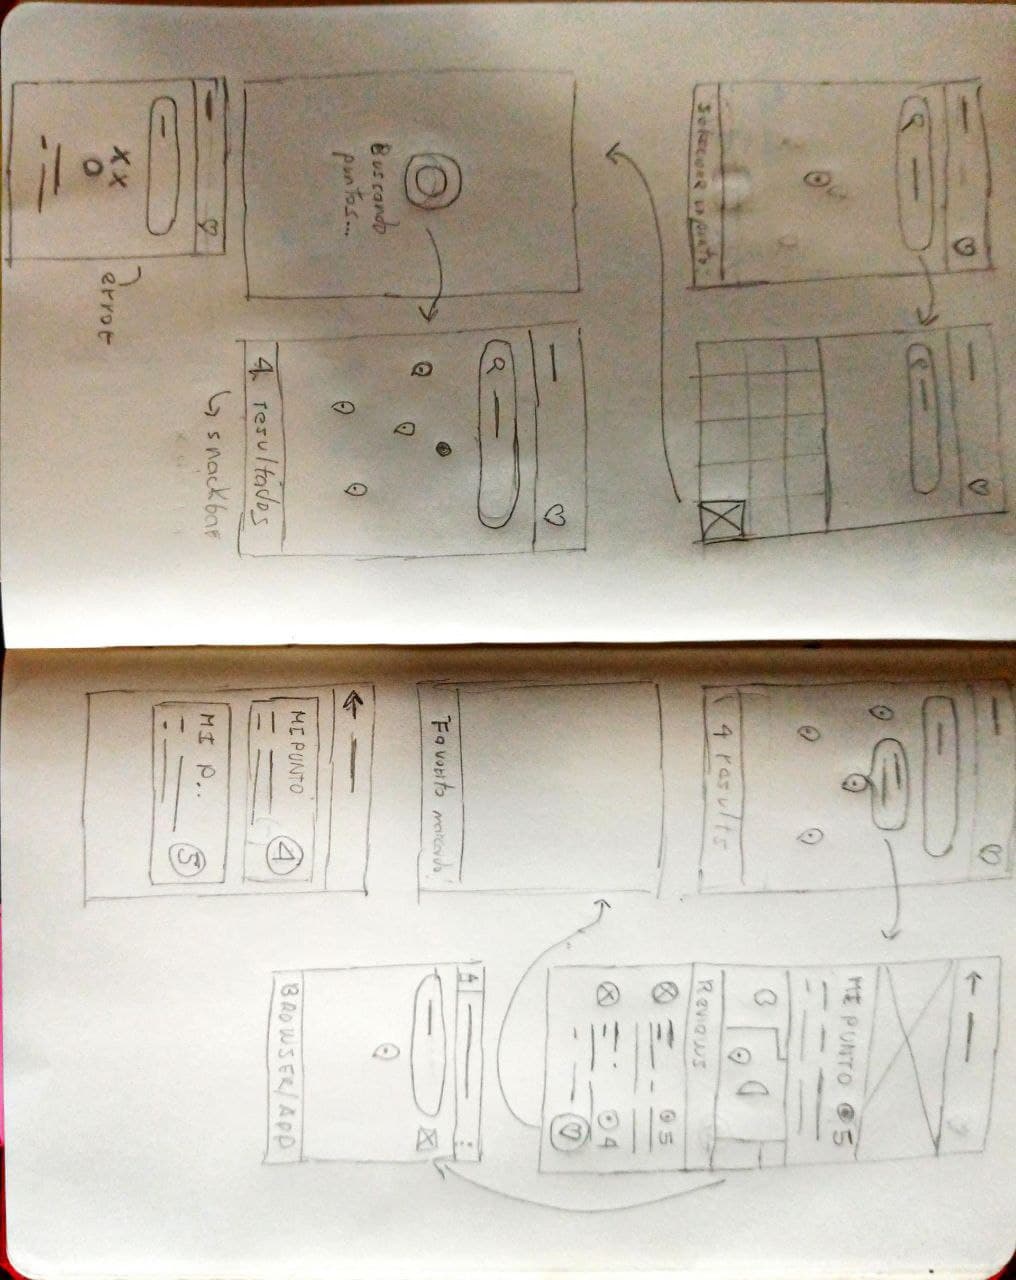 Seleccione un punto.
Buscando
puntos...
4 resultados
↳ snackbar
error
4 results
MI PUNTO 5
Reviews
5
4
Favorito marcado!
BROWSER/APP
MI PUNTO
4
MI P..
5